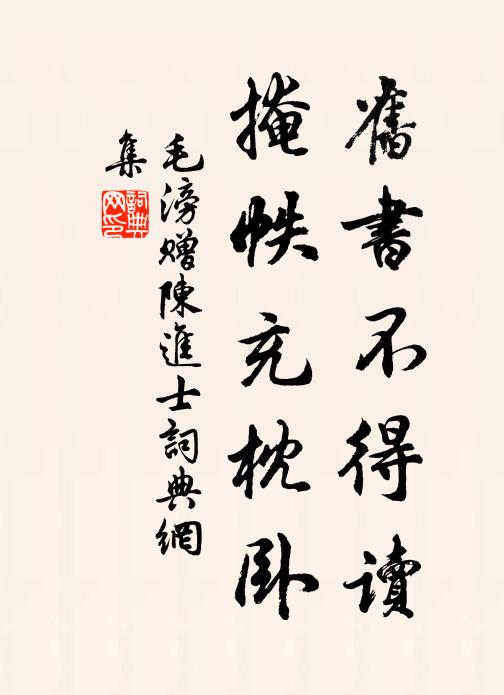 舊書不得讀
掩帙充枕卧
毛滂贈陳進士詞典網
集
詞典
网印